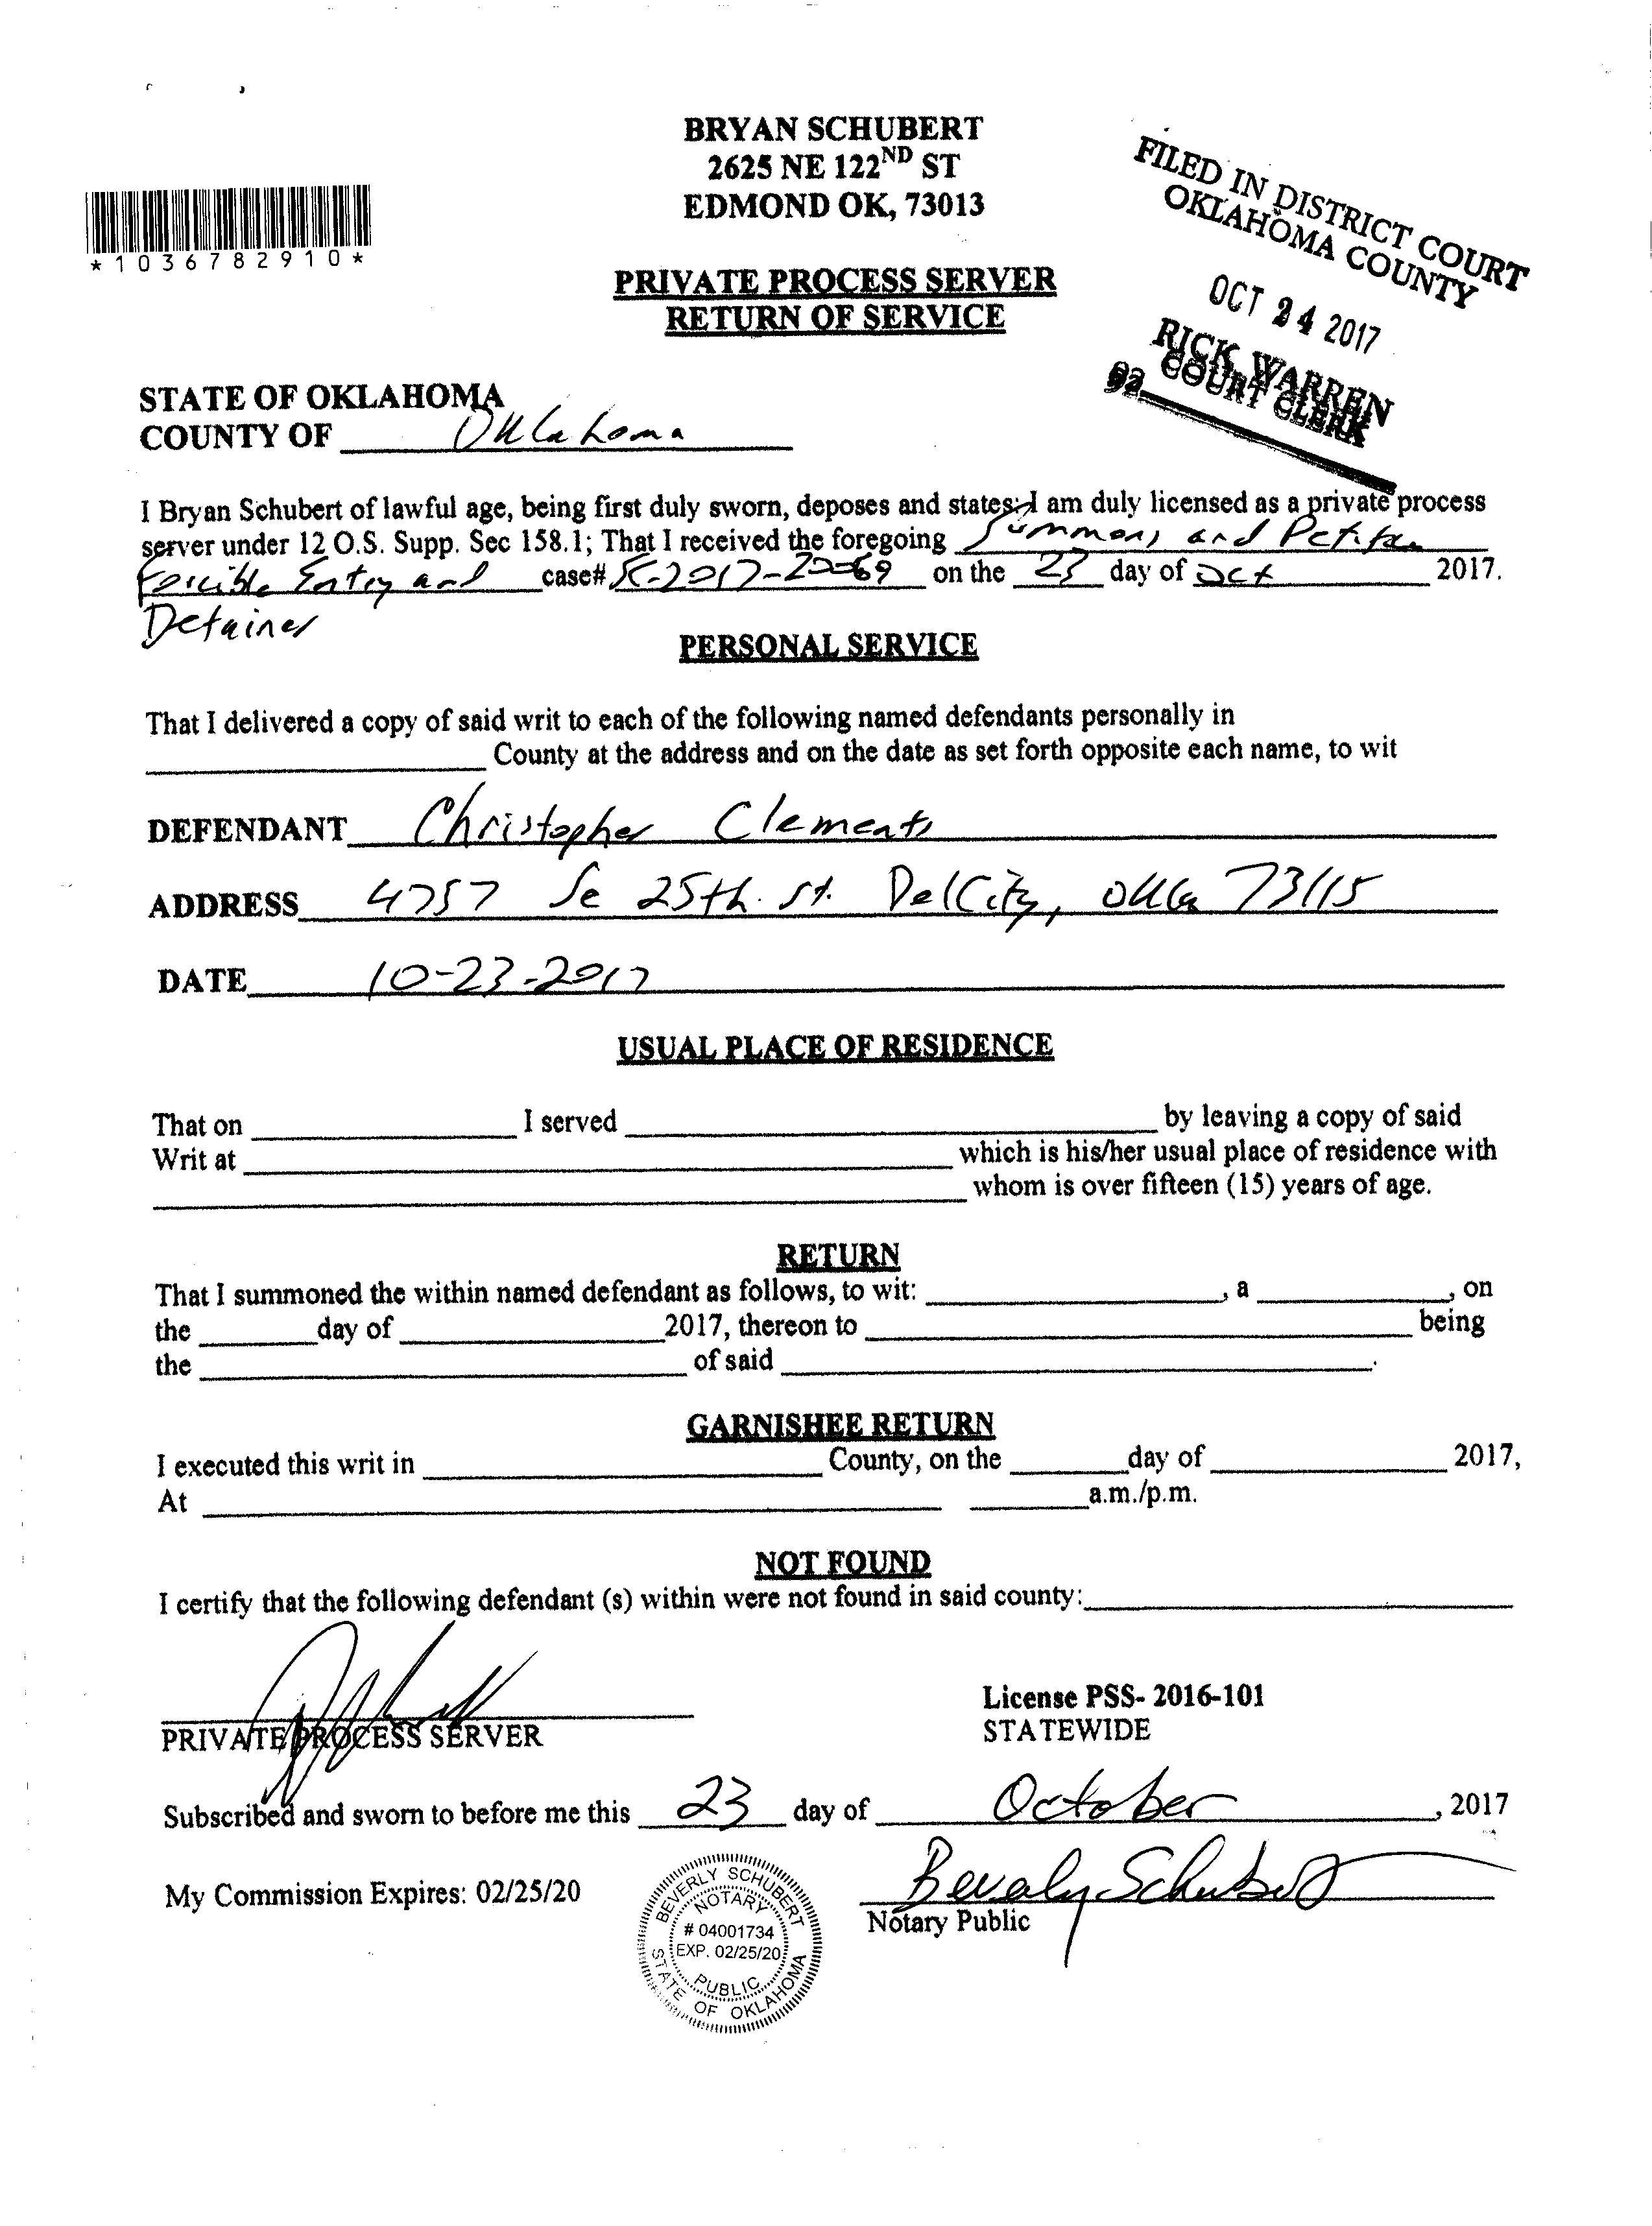 BRYAN SCHUBERT
2625 NE 122ND ST
EDMOND OK, 73013
*1036782910*
FILED IN DISTRICT COURT
OKLAHOMA COUNTY
OCT 24 2017
RICK WARREN
COURT CLERK
PRIVATE PROCESS SERVER
RETURN OF SERVICE
STATE OF OKLAHOMA
COUNTY OF Oklahoma
I Bryan Schubert of lawful age, being first duly sworn, deposes and states; I am duly licensed as a private process
server under 12 O.S. Supp. Sec 158.1; That I received the foregoing Summons and Petition
Forcible Entry and case# SC-2017-20069 on the 23 day of Oct 2017.
Detainer
PERSONAL SERVICE
That I delivered a copy of said writ to each of the following named defendants personally in
County at the address and on the date as set forth opposite each name, to wit
DEFENDANT Christopher Clements
ADDRESS 4757 Se 25th. st. DelCity, Okla 73115
DATE 10-23-2017
USUAL PLACE OF RESIDENCE
That on I served by leaving a copy of said
Writ at which is his/her usual place of residence with
whom is over fifteen (15) years of age.
RETURN
That I summoned the within named defendant as follows, to wit: , a , on
the day of 2017, thereon to being
the of said .
GARNISHEE RETURN
I executed this writ in County, on the day of 2017,
At a.m./p.m.
NOT FOUND
I certify that the following defendant (s) within were not found in said county:
License PSS- 2016-101
PRIVATE PROCESS SERVER STATEWIDE
Subscribed and sworn to before me this 23 day of October, 2017
My Commission Expires: 02/25/20
BEVERLY SCHUBERT
NOTARY
# 04001734
EXP. 02/25/20
PUBLIC
STATE OF OKLAHOMA
Beverly Schubert
Notary Public